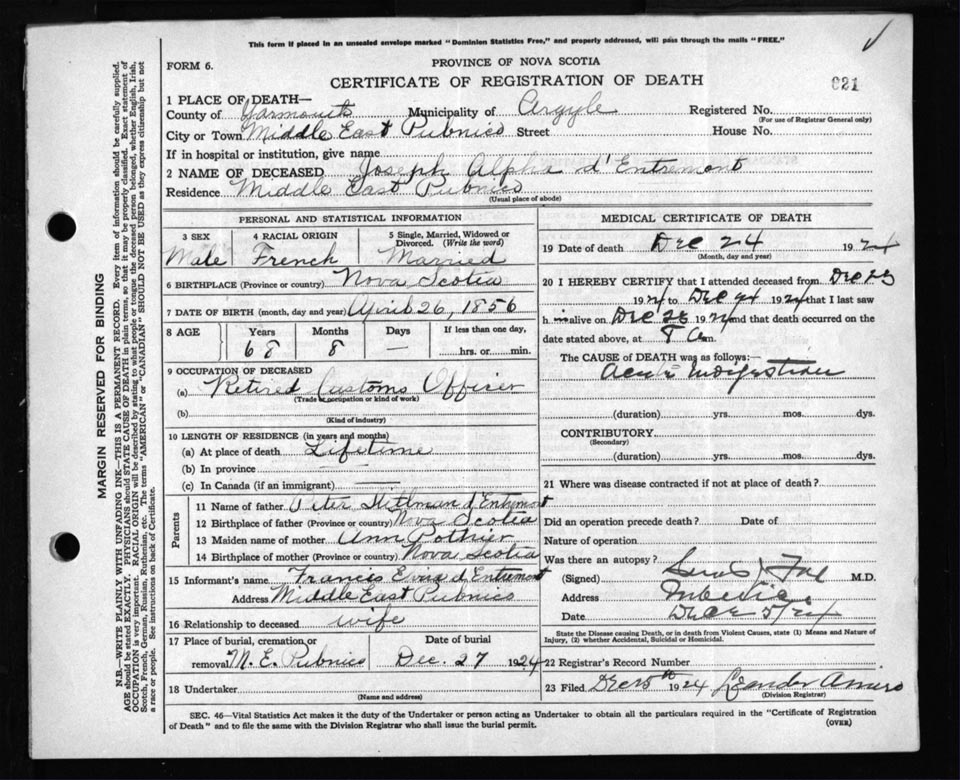 This form if placed in an unsealed envelope marked "Dominion Statistics Free," and properly addressed, will pass through the mails "FREE."
FORM 6.
PROVINCE OF NOVA SCOTIA
CERTIFICATE OF REGISTRATION OF DEATH
621
1 PLACE OF DEATH—
County of Yarmouth Municipality of Argyle Registered No.
(For use of Registrar General only)
City or Town Middle East Pubnico Street House No.
If in hospital or institution, give name
2 NAME OF DECEASED Joseph Alpha d'Entremont
Residence Middle East Pubnico
(Usual place of abode)
PERSONAL AND STATISTICAL INFORMATION
3 SEX
Male
4 RACIAL ORIGIN
French
5 Single, Married, Widowed or
Divorced. (Write the word)
Married
6 BIRTHPLACE (Province or country) Nova Scotia
7 DATE OF BIRTH (month, day and year) April 26, 1856
8 AGE Years Months Days If less than one day,
68 8 — hrs. or min.
9 OCCUPATION OF DECEASED
(a) Retired Customs Officer
(Trade or occupation or kind of work)
(b)
(Kind of industry)
10 LENGTH OF RESIDENCE (in years and months)
(a) At place of death Lifetime
(b) In province —
(c) In Canada (if an immigrant) —
Parents
11 Name of father Peter d'Entremont
12 Birthplace of father (Province or country) Nova Scotia
13 Maiden name of mother Ann Pothier
14 Birthplace of mother (Province or country) Nova Scotia
15 Informant's name Francis d'Entremont
Address Middle East Pubnico
16 Relationship to deceased wife
17 Place of burial, cremation or Date of burial
removal M. E. Pubnico Dec. 27 1924
18 Undertaker
(Name and address)
MEDICAL CERTIFICATE OF DEATH
19 Date of death Dec 24 1924
(Month, day and year)
20 I HEREBY CERTIFY that I attended deceased from Dec 23
1924 to Dec 24 1924 that I last saw
h im alive on Dec 1924 and that death occurred on
date stated above, at 8 a m.
The CAUSE OF DEATH was as follows:
Acute Indigestion
(duration) yrs. mos. dys.
CONTRIBUTORY
(Secondary)
(duration) yrs. mos. dys.
21 Where was disease contracted if not at place of death?
Did an operation precede death? Date of
Nature of operation
Was there an autopsy?
(Signed) M.D.
Address
Date
State the Disease causing Death, or in death from Violent Causes, state (1) Means and Nature of
Injury, (2) whether Accidental, Suicidal or Homicidal.
22 Registrar's Record Number
23 Filed Dec 1924 Leander Amiro
(Division Registrar)
SEC. 46—Vital Statistics Act makes it the duty of the Undertaker or person acting as Undertaker to obtain all the particulars required in the "Certificate of Registration
of Death" and to file the same with the Division Registrar who shall issue the burial permit.
(OVER)
MARGIN RESERVED FOR BINDING
N.B.—WRITE PLAINLY WITH UNFADING INK—THIS IS A PERMANENT RECORD. Every item of information should be carefully supplied.
AGE should be stated EXACTLY. PHYSICIANS should STATE CAUSE OF DEATH in plain terms, so that it may be properly classified. Exact statement of
OCCUPATION is very important. RACIAL ORIGIN will be described by stating to what people or tongue the deceased person belonged, whether English, Irish,
Scotch, French, German, Russian, Ruthenian, etc. The terms "AMERICAN" or "CANADIAN" SHOULD NOT BE USED as they express citizenship but not
a race or people. See instructions on back of Certificate.